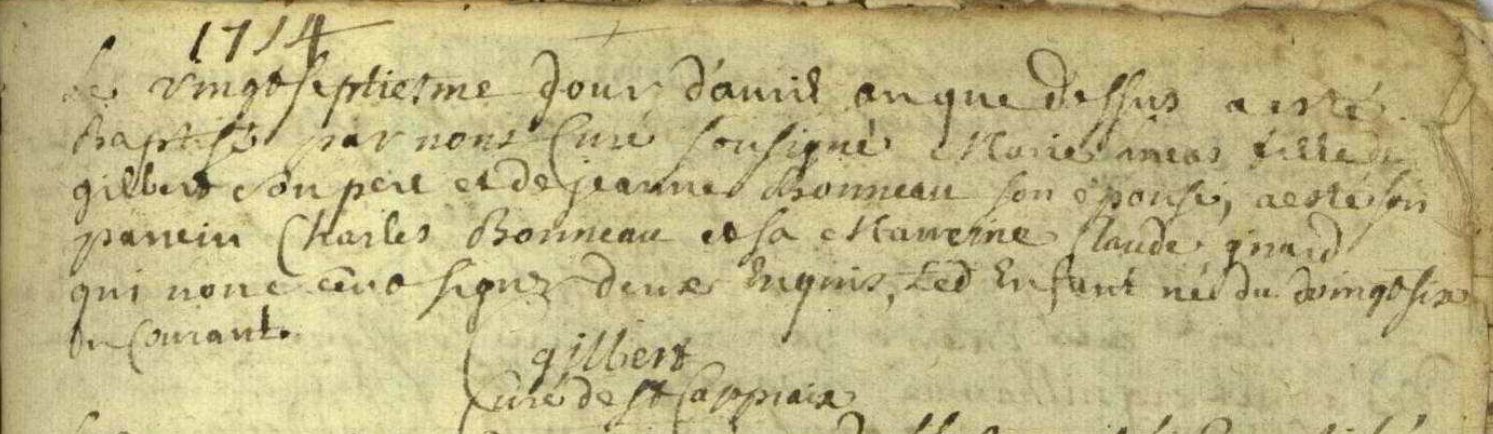 1714
Le vingt septiesme Jour d'avril an que dessus a esté
Baptisé par nous Curé sousigné Marie fille de
gilbert son pere et de jeanne Bonneau son épouse, a esté son
parrein Charles Bonneau et sa Marreine Claude
qui nont signé de ce Enquis, Led Enfant né du vingt six
du Courant.
gilbert
Curé de st Cappraix